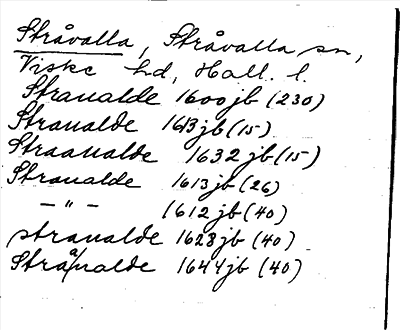 Stråvalla, Stråvalla sn,
Viske hd, Hall. l.
Stranalde 1600 jb (230)
Stranalde 1613 jb (15)
Straanalde 1632 jb (15)
Stranalde 1613 jb (26)
— " — 1612 jb (40)
stranalde 1628 jb (40)
Strånalde 1644 jb (40)